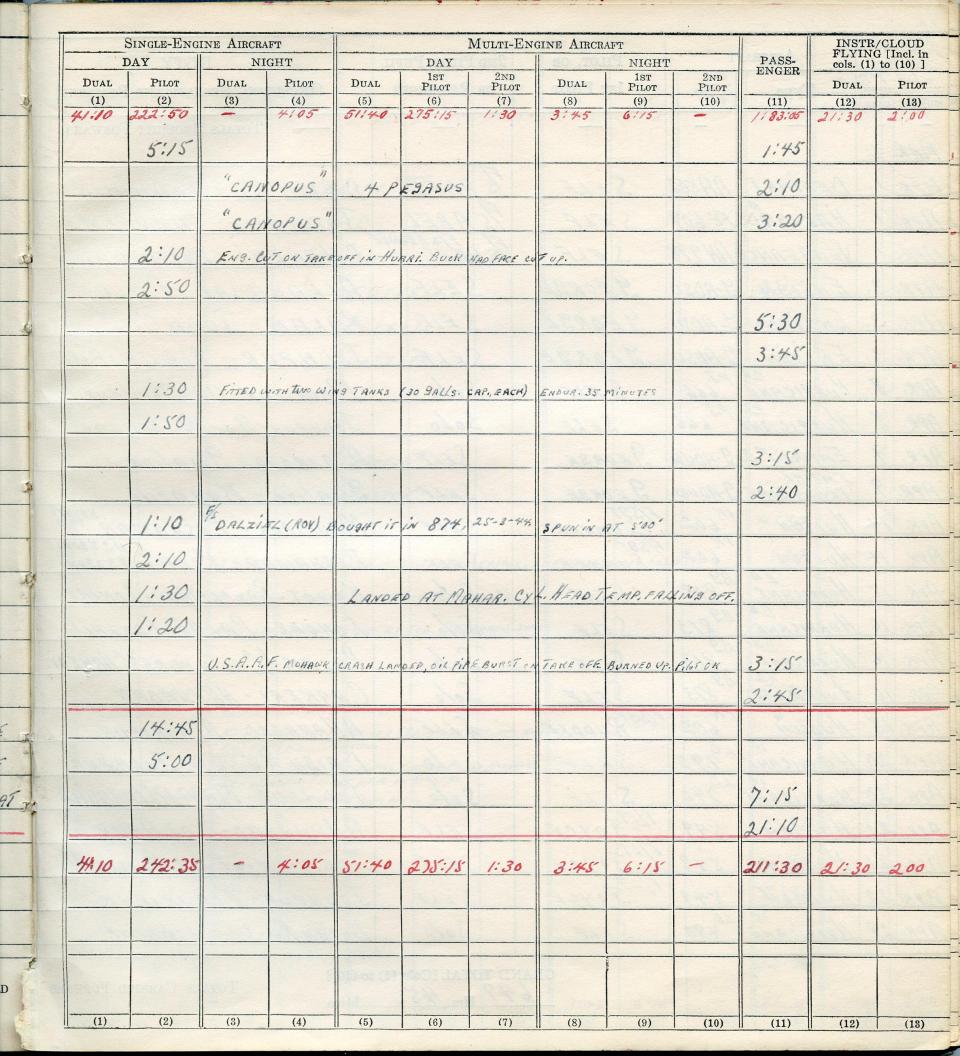 SINGLE-ENGINE AIRCRAFT MULTI-ENGINE AIRCRAFT PASS-ENGER INSTR/CLOUD FLYING [Incl. in cols. (1) to (10) ]
DAY NIGHT DAY NIGHT
DUAL PILOT DUAL PILOT DUAL 1ST PILOT 2ND PILOT DUAL 1ST PILOT 2ND PILOT DUAL PILOT
(1) (2) (3) (4) (5) (6) (7) (8) (9) (10) (11) (12) (13)
41:10 222:50 - 4:05 51:40 275:15 1:30 3:45 6:15 - 183:05 21:30 2:00
5:15 1:45
"CANOPUS" 4 PEGASUS 2:10
"CANOPUS" 3:20
2:10 ENG. CUT ON TAKE OFF IN HURRI. BUCK HAD FACE CUT UP.
2:50
5:30
3:45
1:30 FITTED WITH TWO WING TANKS (30 GALLS. CAP., EACH) ENDUR. 35 MINUTES
1:50
3:15
2:40
1:10 F/S DALZIEL (ROY) BOUGHT IT IN 874, 25-2-44 SPUN IN AT 500'
2:10
1:30 LANDED AT MAHAR. CYL. HEAD TEMP. FALLING OFF.
1:20
U.S.A.A.F. MOHAWK CRASH LANDED, OIL PIPE BURST ON TAKE OFF. BURNED UP. PILOT OK 3:15
2:45
14:45
5:00
7:15
21:10
41:10 242:35 - 4:05 51:40 275:15 1:30 3:45 6:15 - 211:30 21:30 2:00
(1) (2) (3) (4) (5) (6) (7) (8) (9) (10) (11) (12) (13)